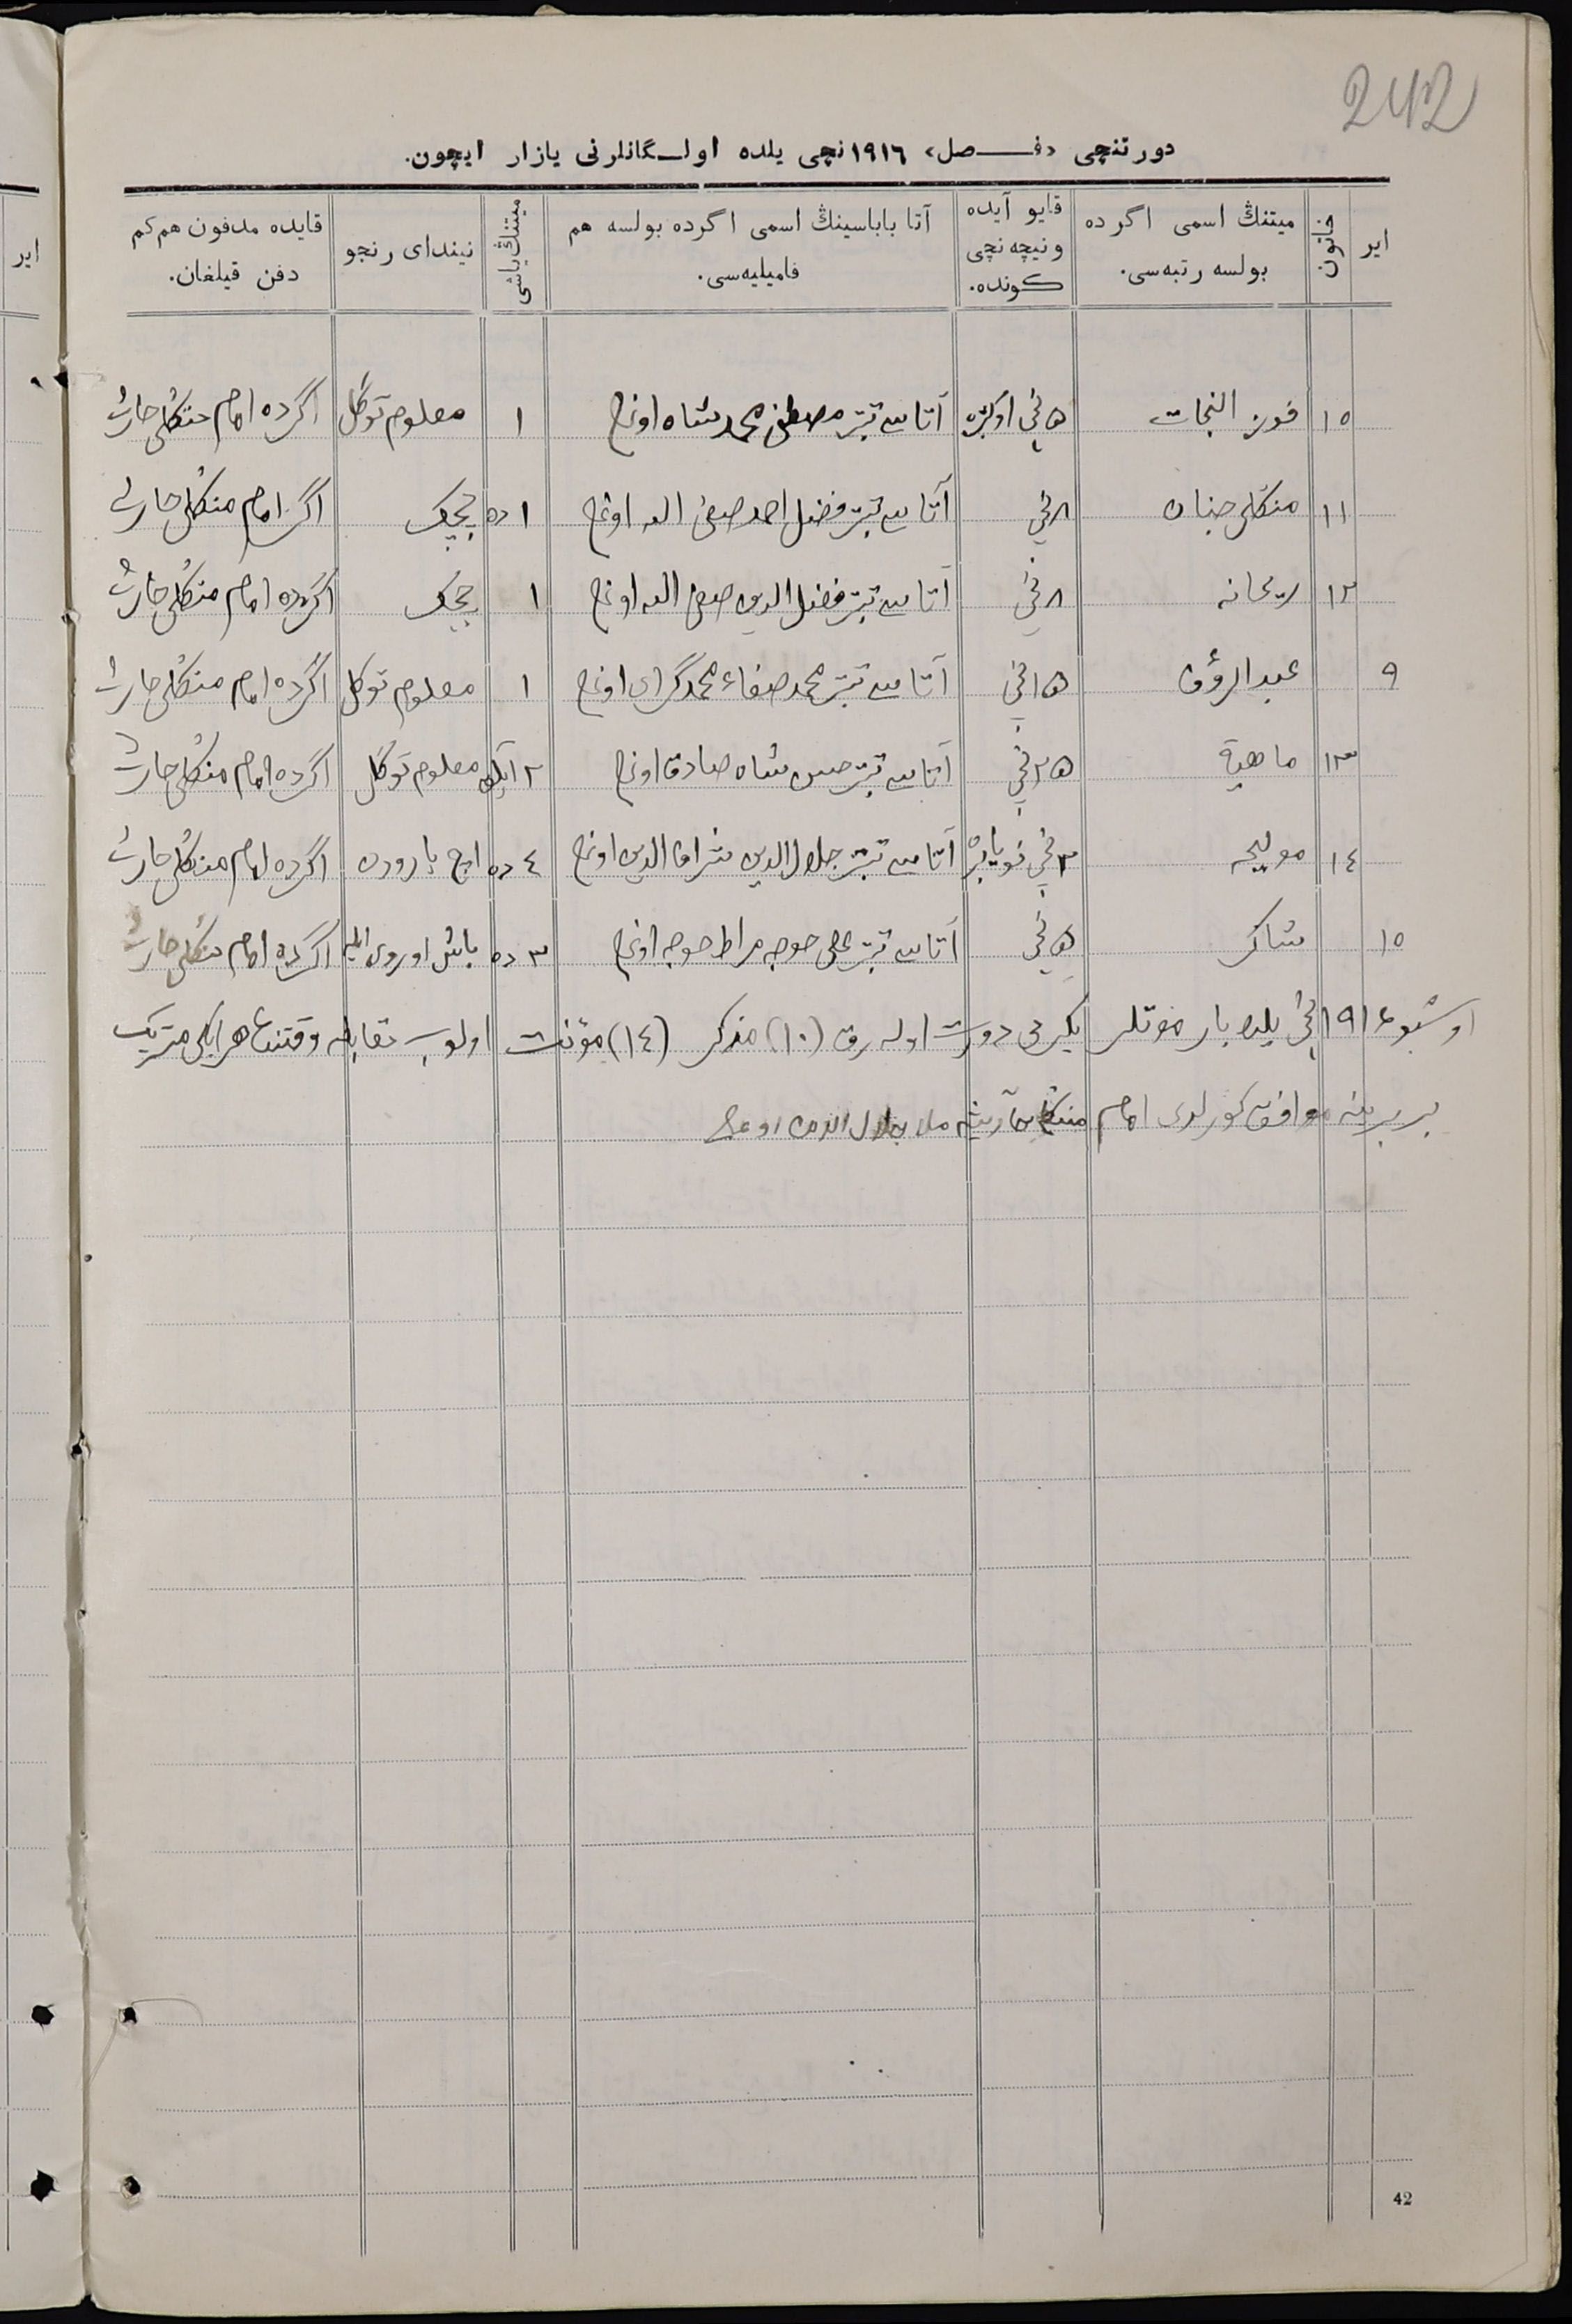 242
دورتنچی «فـصل» ١٩١٦نچی يلده اولـگانلرنی يازار ايچون.
اير
خاتون
ميتنڭ اسمی اگر ده بولسه رتبه‌سی.
قايو آيده ونيچه نچی كونده.
آتا باباسينڭ اسمی اگرده بولسه هم فاميليه‌سی.
ميتنڭ ياشی
نيندای رنجو
قايده مدفون هم كم دفن قيلغان.
اير
١٠ فوز النجات ٥ نچی اوكتبره آتاسی تبتر مصطفی محمدشاه اوغلی ١ معلوم توگل اگرده امام منگلی حارث
١١ منگلی جنان ٨ نچی آتاسی تبتر فضل احمد صفی الله اوغلی ١ ده چچك اگرده امام منگلی حارث
١٢ ريحانه ٨ نچی آتاسی تبتر فضل الدين صفی الله اوغلی ١ چچك اگرده امام منگلی حارث
٩ عبد الرؤف ١٥ نچی آتاسی تبتر محمد صفاء محمدگرای اوغلی ١ معلوم توگل اگرده امام منگلی حارث
١٣ ماهية ٢٥ نچی آتاسی تبتر حسن شاه صادق اوغلی ٢ آيلق معلوم توگل اگرده امام منگلی حارث
١٤ مليحه ٣ نچی نويابر آتاسی تبتر جلال الدين شراف الدين اوغلی ٤ ده اچ بارودن اگرده امام منگلی حارث
١٠ شاكر ٥ نچی آتاسی تبتر علی خوجه مراط خوجه اوغلی ٣ ده باش اوروی ايله اگرده امام منگلی حارث
اوشبو ١٩١٦ نچی يلده بار موتلر يكرمی دورت اوله رق (١٠) مذكر (١٤) مؤنث اولوب مقابله وقتنده هر ايكی متريك
بربرينه موافق كورلدی امام منگلی حارث ملا جلال الدين اوغلی
42